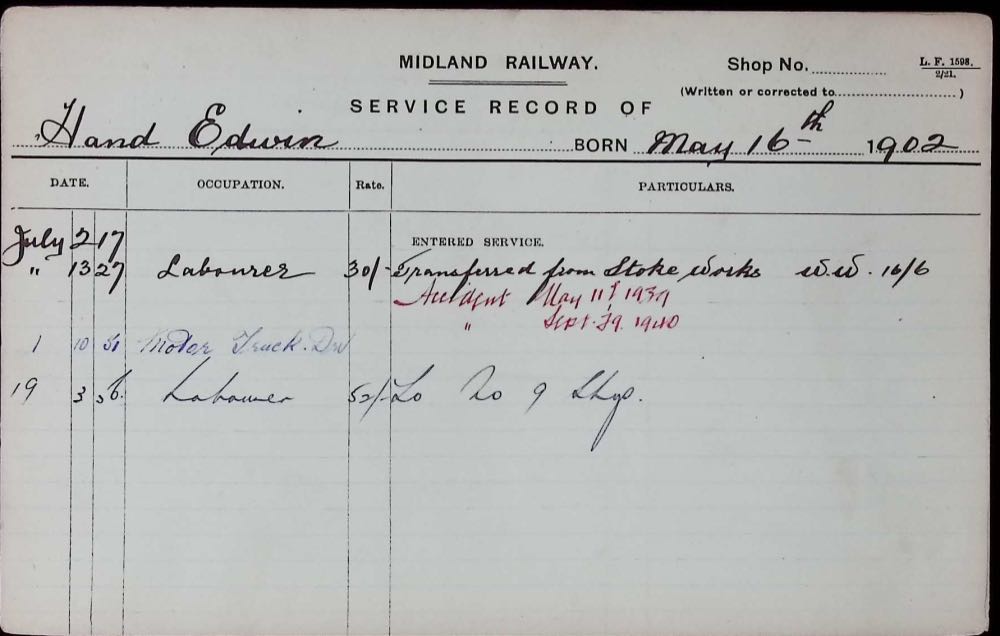 MIDLAND RAILWAY. Shop No.
L. F. 1598.
2/21.
(Written or corrected to )
SERVICE RECORD OF
Hand Edwin BORN May 16th 1902
DATE. OCCUPATION. Rate. PARTICULARS.
July 2 17 ENTERED SERVICE.
" 13 27 Labourer 30/- Transferred from Stoke Works W.W. 16/6
Accident May 11th 1939
" Sept. 29. 1940
1 10 51 Motor Truck. Dri
19 3 56. Labourer 52/- To No 9 Shop.